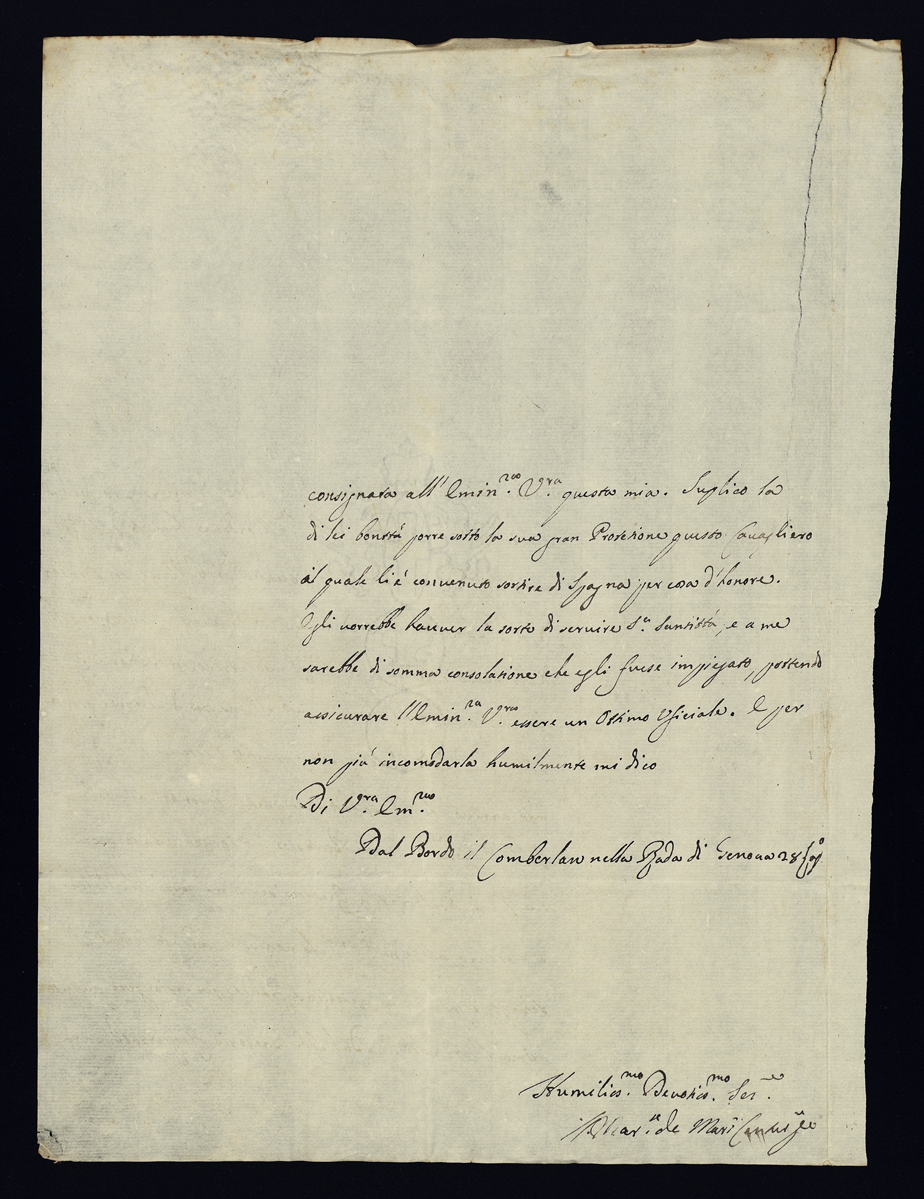 consignara all'Emin.za V.ra questa mia. Suplico la
di lei bontá porre sotto la sua gran Protetione questo Cavagliero
il quale li é convenuto sortire di Spagna per cosa d'honore.
Egli vorrebbe hauuer la sorte di seruire S.a Santittá, e a me
sarebbe di somma consolatione che egli fuese impiegato, potendo
assicurare l'Emin.za V.ra essere un Ottimo Oficiale. E per
non piú incomodarla humilmente mi dico
Di V.ra Em.za
Dal Bordo il Comberlan nella Rada di Genoua 28
Humiliss.mo Deuotiss.mo Ser.e
Mar.se de Mari